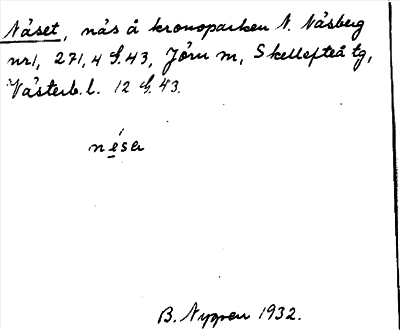 Näset, näs å kronoparken N. Näsberg
nr1, 271,4 S.43, Jörn m, Skellefteå tg,
Västerb. l. 12 S.43.
nésa
B. Nyppen 1932.